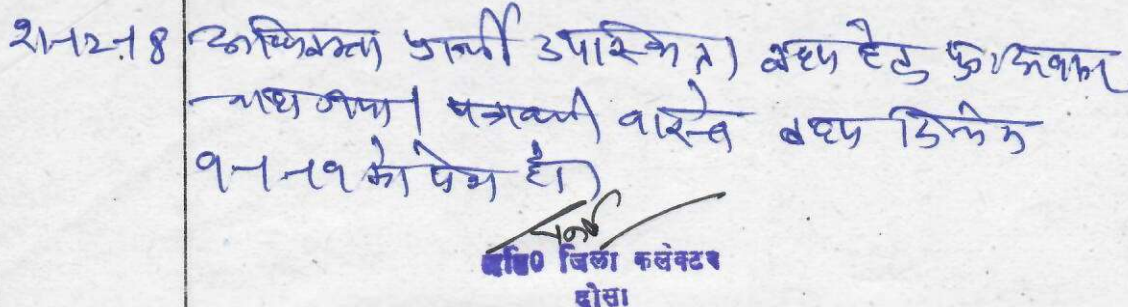 21-12-18 अधिवक्ता प्रार्थी उपस्थित। बहस हेतु पुनः अवसर
चाहा गया। पत्रावली वास्ते बहस दिनांक
9-1-19 को पेश हो।
अति0 जिला कलेक्टर
दौसा